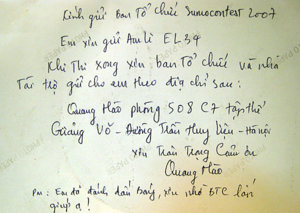 Kính gửi Ban Tổ chức Sumocontest 2007
Em xin gửi Amli EL34
Khi Thi xong xin ban tổ chức và nhà
Tài trợ gửi cho em theo địa chỉ sau:
Quang Hào phòng 508 C7 tập thể
Giảng Võ - Đường Trần Huy Liệu - Hà nội
Xin Trân Trọng Cảm ơn
Quang Hào
PM: Em đã đánh dấu Bóng, xin nhờ BTC lắp
giúp ạ!